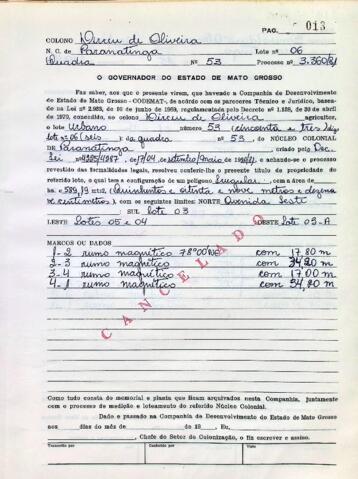 PAG. 013
COLONO Dirceu de Oliveira
N. C. de Paranatinga Lote nº 06
Quadra Nº 53 Processo nº 3.360/81
O GOVERNADOR DO ESTADO DE MATO GROSSO
Faz saber, aos que o presente virem, que havendo a Companhia de Desenvolvimento
do Estado de Mato Grosso - CODEMAT-, de acôrdo com os pareceres Técnico e Jurídico, basea-
da na Lei nº 2.983, de 20 de junho de 1969, regulamentada pelo Decreto nº 1.225, de 23 de abril
de 1970, concedido, ao colono Dirceu de Oliveira agricultor,
o lote Urbano número 53 (cincoenta e tres) digo
lote nº 06 (seis) da quadra nº 53, do NÚCLEO COLONIAL
DE Paranatinga, criado pelo Dec.
e achando-se o processo
revestido das formalidades legais, resolveu conferir-lhe o presente título de propriedade do
referido lote, o qual tem a configuração de um polígono Irregular, com a área de
ha - 589,19 mts2, (Quinhentos e oitenta e nove metros e dezenove
centimetros), com os seguintes limites: NORTE Avenida
SUL lote 03
LESTE Lotes 05 e 04 OESTE lote 03-A
MARCOS OU DADOS
1-2 rumo magnético 78º00'NE com 17,80 m
2-3 rumo magnético com 34,20 m
3-4 rumo magnético com 17,00 m
4-1 rumo magnético com 34,20 m
CANCELADO
Como tudo consta do memorial e planta que ficam arquivados nesta Companhia, juntamente
com o processo de medição e loteamento do referido Núcleo Colonial.
Dado e passado na Companhia de Desenvolvimento do Estado de Mato Grosso
aos dias do mês de do 19 , Eu,
, Chefe do Setor de Colonização, o fiz escrever e assino.
Transcrito por Conferido por Visto